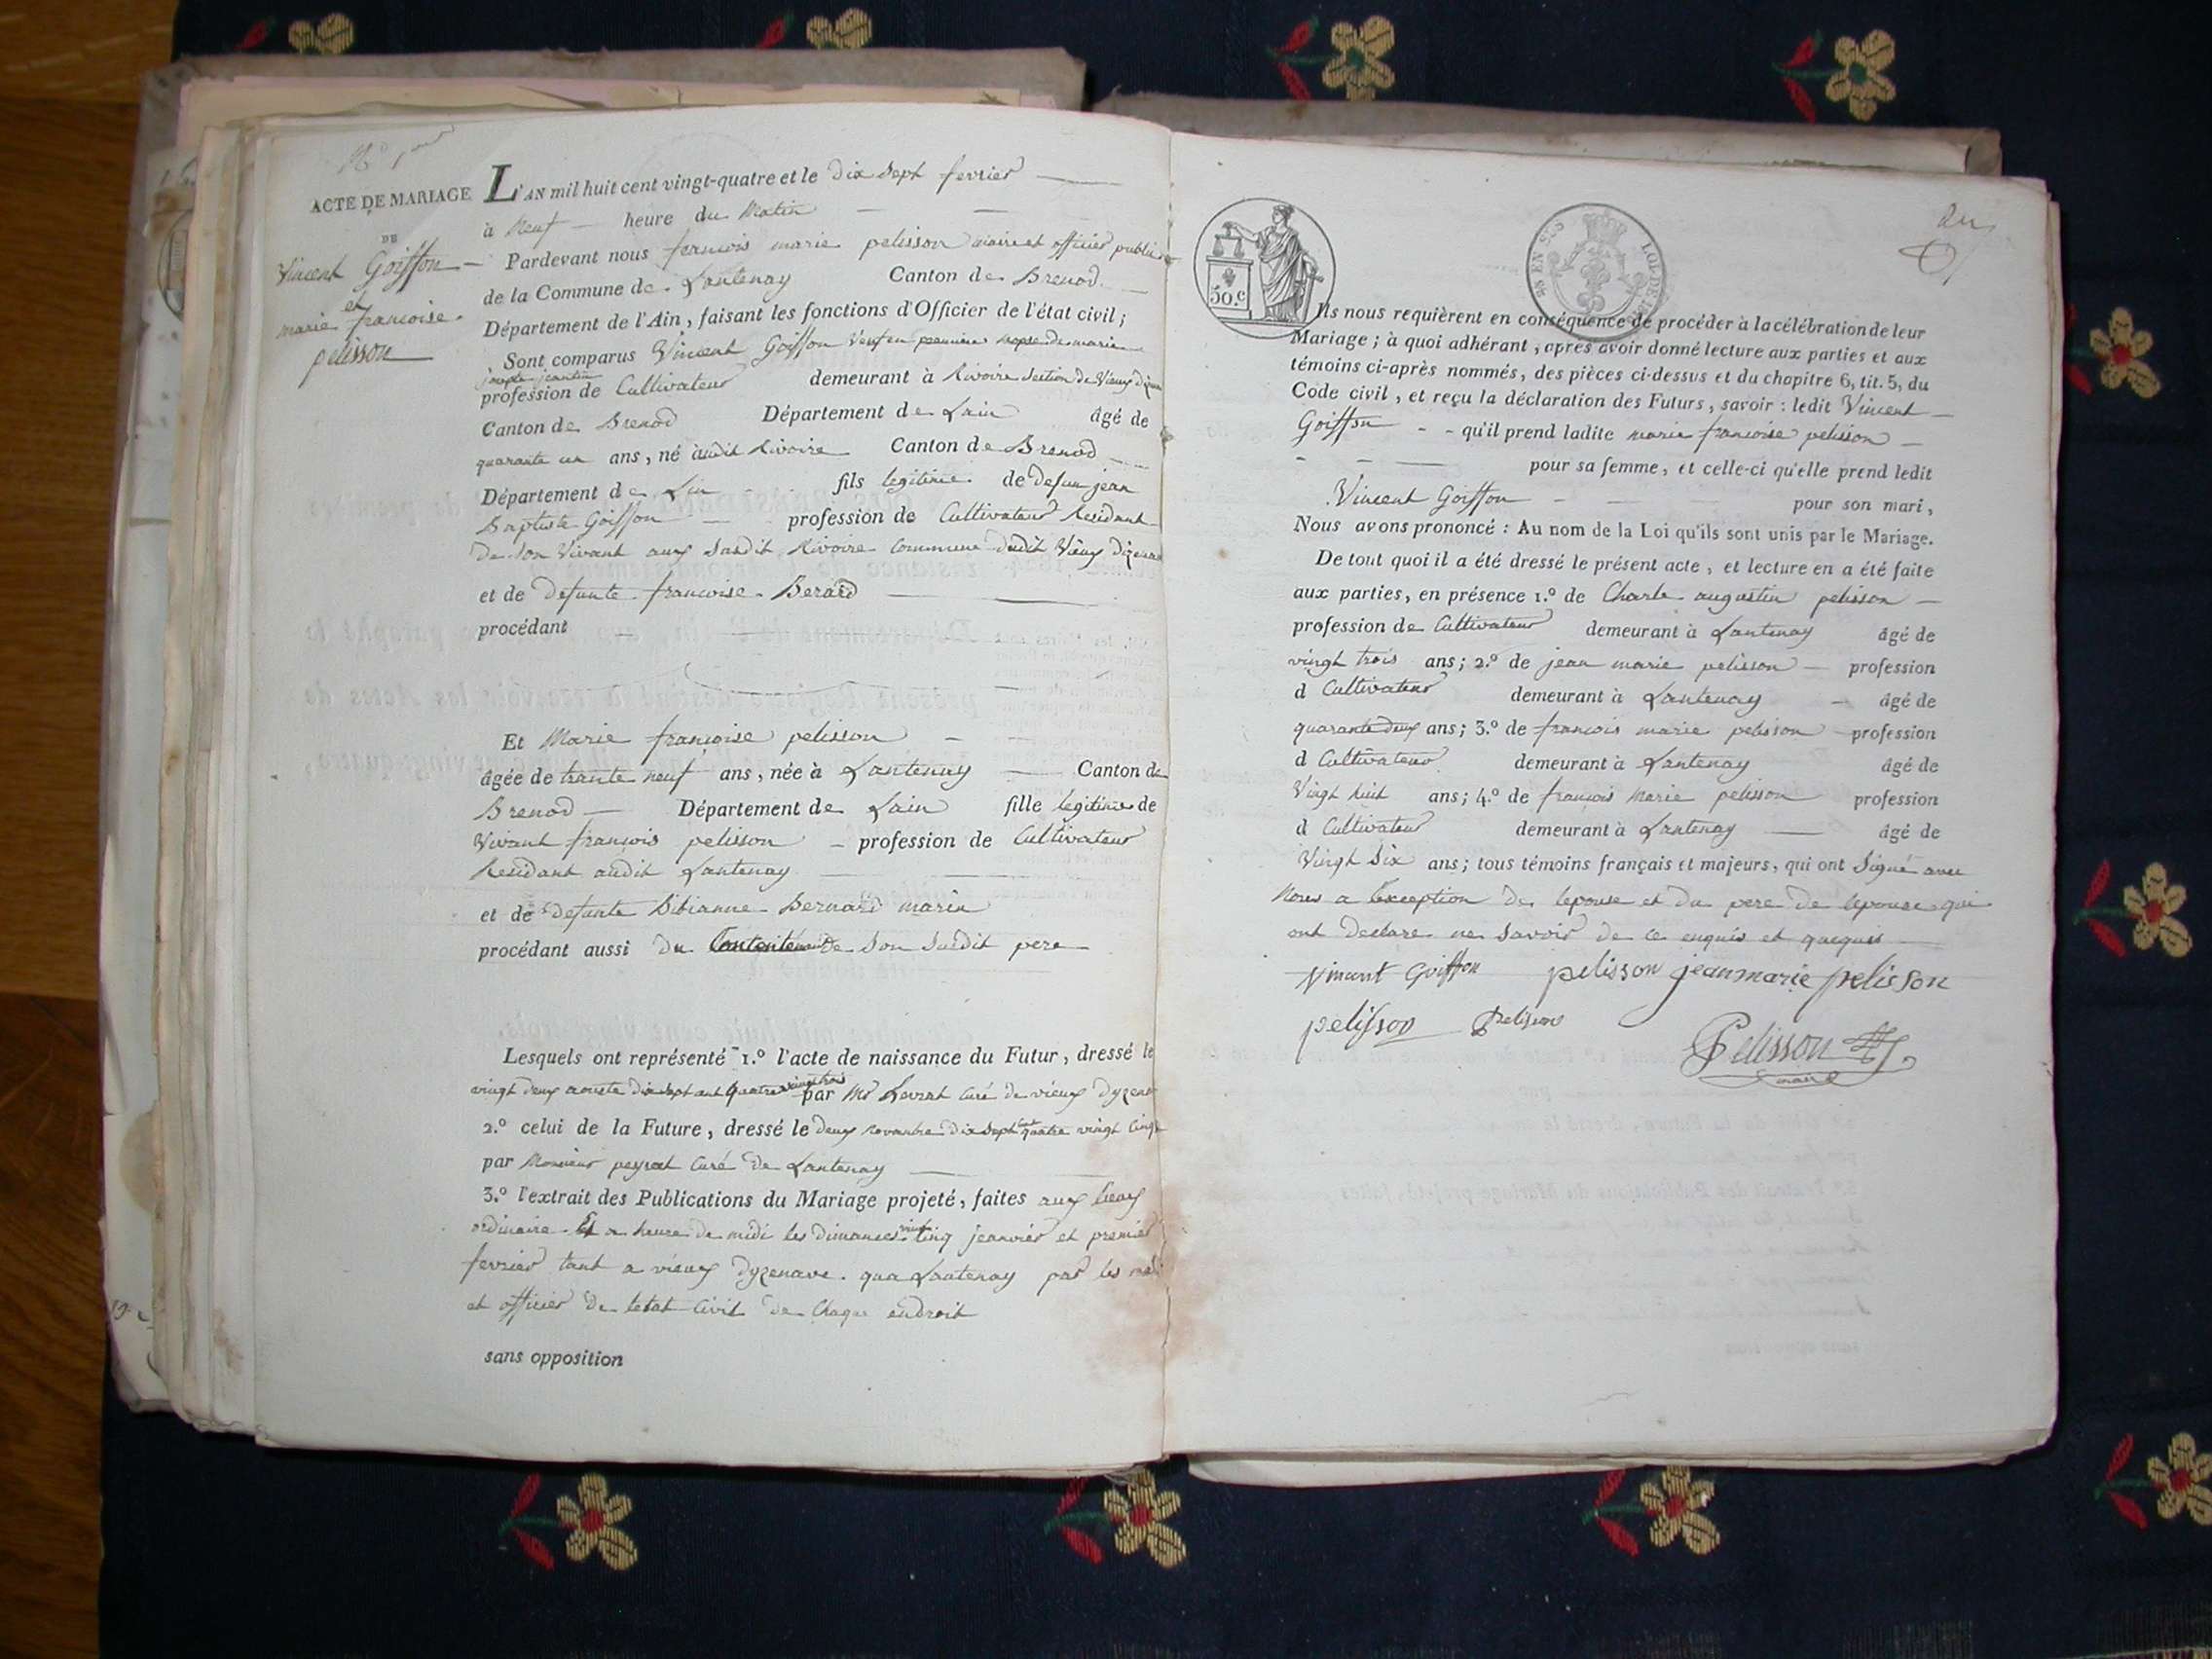 ACTE DE MARIAGE
DE
Vincent Goiffon
et
marie francoise
pelisson
L'AN mil huit cent vingt-quatre et le dix sept fevrier
à Neuf heure du Matin
Pardevant nous francois marie pelisson maire et officier public
de la Commune de Lantenay Canton de Brenod
Département de l'Ain, faisant les fonctions d'Officier de l'état civil;
Sont comparus Vincent Goiffon Veuf en premiere nopse de marie
josepte
profession de Cultivateur demeurant à Rivoire Section de Vieux
Canton de Brenod Département de Lain âgé de
quarante un ans, né audit Rivoire Canton de Brenod
Département de Lin fils legitime de defun jean
Baptiste Goiffon profession de Cultivateur Residant
de son Vivant aux Susdit Rivoire Commune dudit Vieux
et de defunte francoise Berard
procédant
Et Marie françoise pelisson
âgée de trante neuf ans, née à Lantenay Canton de
Brenod Département de Lain fille legitime de
Vivant francois pelisson profession de Cultivateur
Residant audit Lantenay
et de defunte Bibianne Bernard marin
procédant aussi du de son Susdit pere
Lesquels ont représenté 1.º l'acte de naissance du Futur, dressé le
vingt deux aouste dix sept ent quatre vingt trois par Mr curé de vieux
2.º celui de la Future, dressé le deux novambre dix sept ent quatre vingt cinq
par Monsieur peyrat curé de Lantenay
3.º l'extrait des Publications du Mariage projeté, faites aux lieux
ordinaire Et a heure de midi les dimances vint cinq jeanvier et premier
fevrier tant a vieux dyzenave qua Lantenay par les
et officier de letat Civil de Chaque endroit
sans opposition
50.c
Ils nous requièrent en conséquence de procéder à la célébration de leur
Mariage; à quoi adhérant, après avoir donné lecture aux parties et aux
témoins ci-après nommés, des pièces ci-dessus et du chapitre 6, tit. 5, du
Code civil, et reçu la déclaration des Futurs, savoir: ledit Vincent
Goiffon qu'il prend ladite marie francoise pelisson
pour sa femme, et celle-ci qu'elle prend ledit
Vincent Goiffon pour son mari,
Nous avons prononcé: Au nom de la Loi qu'ils sont unis par le Mariage.
De tout quoi il a été dressé le présent acte, et lecture en a été faite
aux parties, en présence 1.º de Charle augustin pelisson
profession de Cultivateur demeurant à Lantenay âgé de
vingt trois ans; 2.º de jean marie pelisson profession
d Cultivateur demeurant à Lantenay âgé de
quarante deux ans; 3.º de francois marie pelisson profession
d Cultivateur demeurant à Lantenay âgé de
Vingt huit ans; 4.º de françois Marie pelisson profession
d Cultivateur demeurant à Lantenay âgé de
Vingt Six ans; tous témoins français et majeurs, qui ont Signé avec
Nous a Lexception de lepouse et du pere de lepouse qui
ont declare ne Savoir de ce enquis et
vincent Goiffon pelisson jean marie pelisson
pelisson pelisson
Pelisson
maire